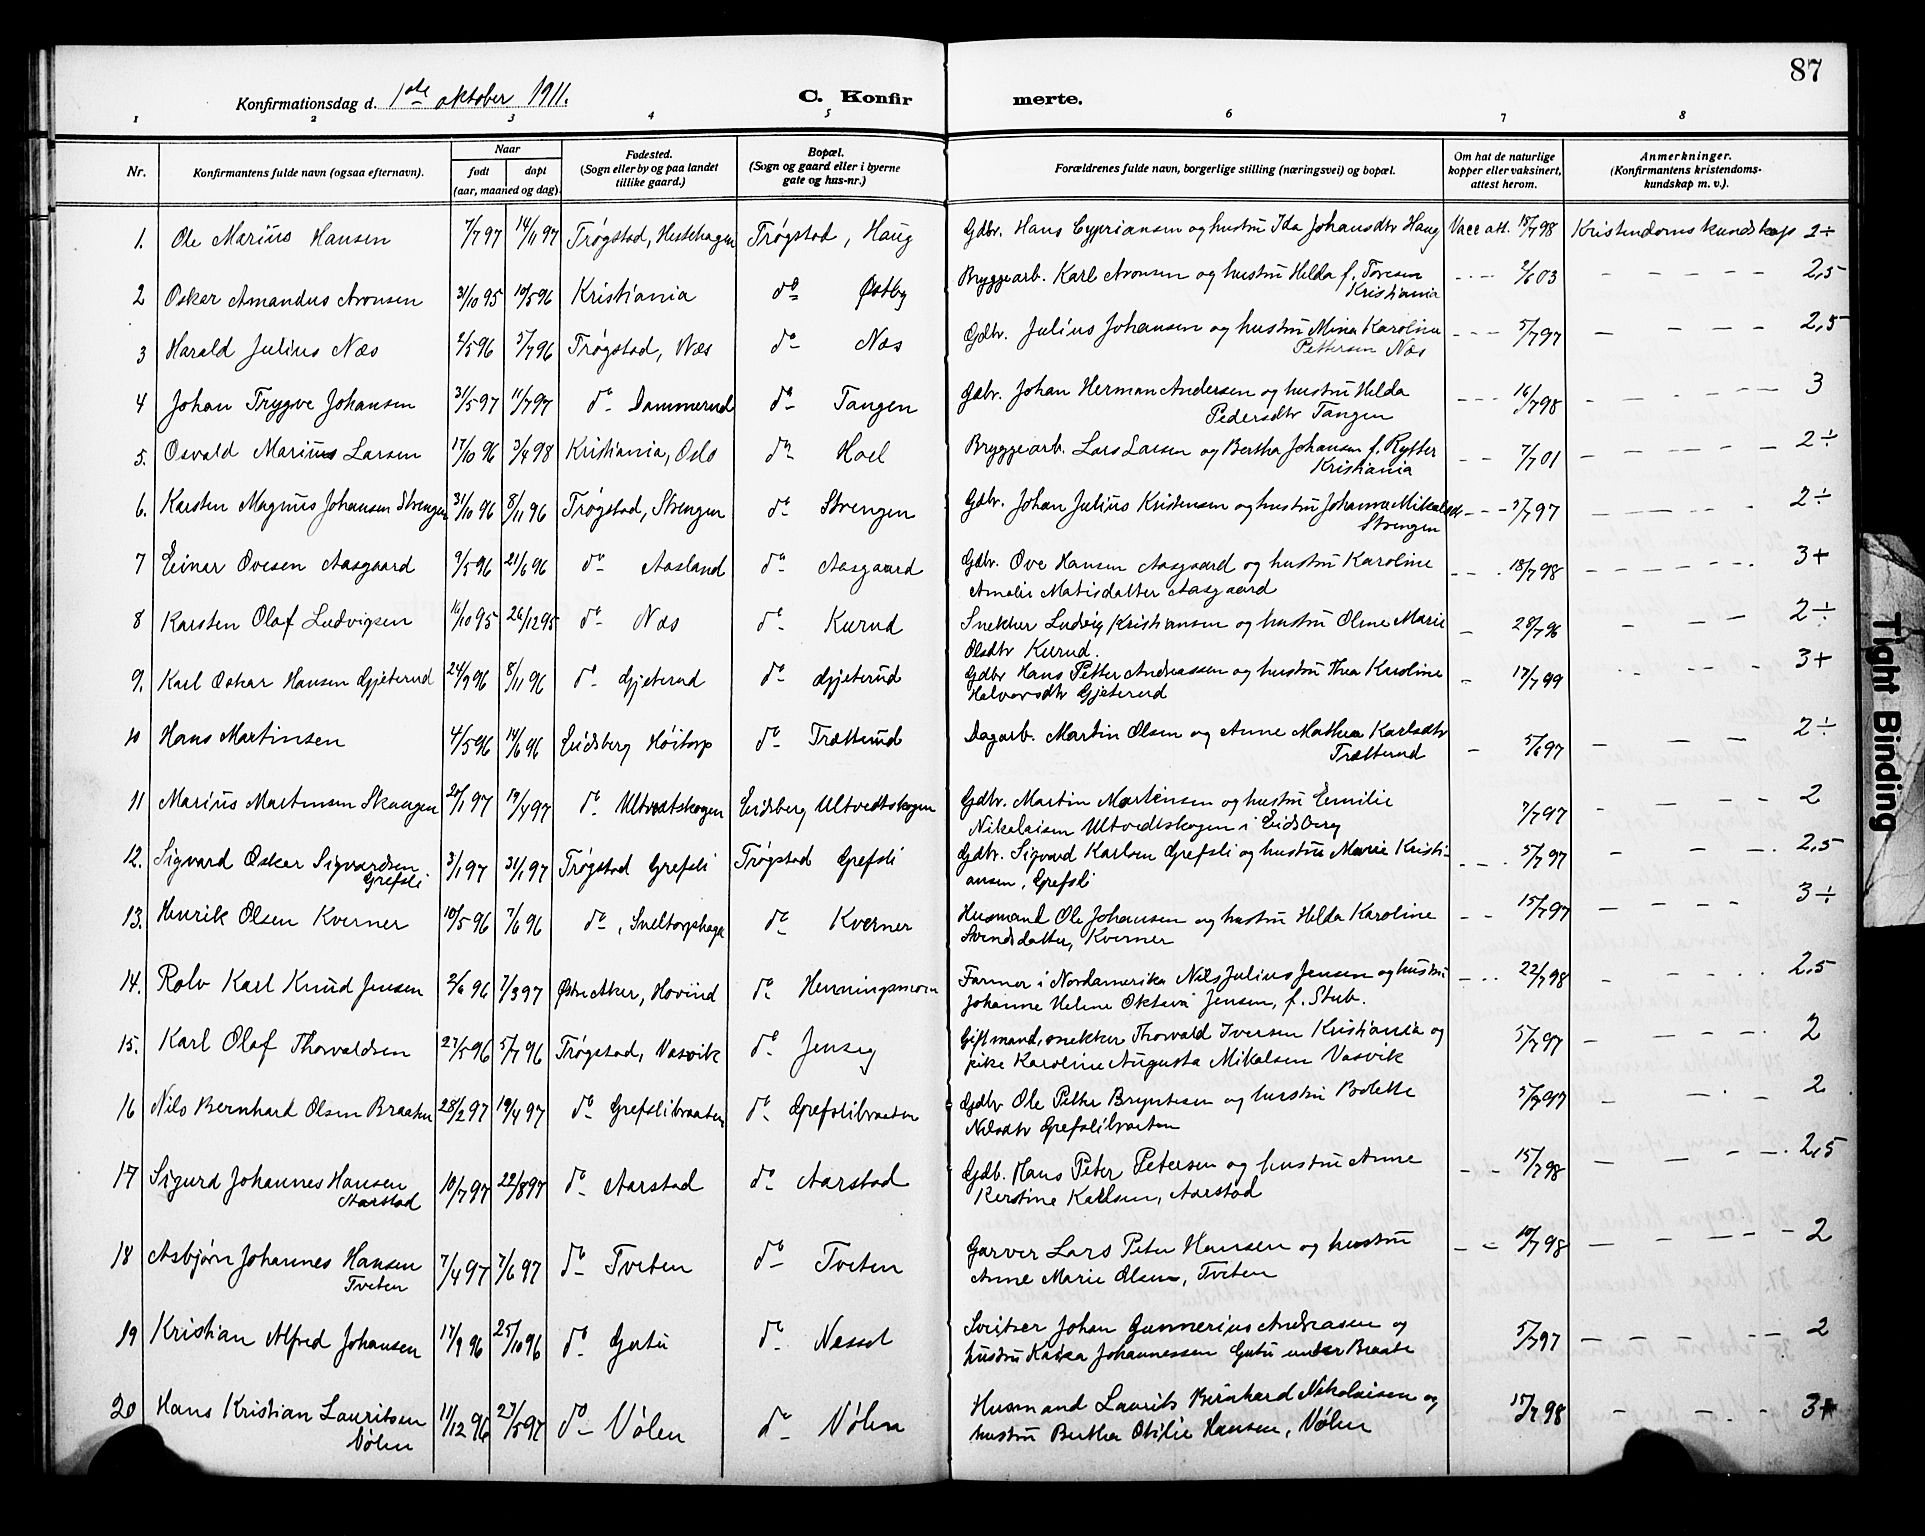 87
Konfirmationsdag d. 1ste oktober 1911.
C. Konfir merte.
1 2 3 4 5 6 7 8
Nr.
Konfirmantens fulde navn (ogsaa efternavn).
Naar
født døpt
(aar, maaned og dag).
Fødested.
(Sogn eller by og paa landet
tillike gaard.)
Bopæl.
(Sogn og gaard eller i byerne
gate og hus-nr.)
Forældrenes fulde navn, borgerlige stilling (næringsvei) og bopæl.
Om hat de naturlige
kopper eller vaksinert,
attest herom.
Anmerkninger.
(Konfirmantens kristendoms-
kundskap m. v.).
1. Ole Marius Hansen 7/7 97 14/11 97 Trøgstad, Hestehagen Trøgstad, Haug Gdbr. Hans Cypriansen og hustru Ida Johansdtr Haug Vacc att. 18/7 98 Kristendomskundskap 2÷
2 Oskar Amandus Aronsen 31/10 95 10/5 96 Kristiania do Østby Bryggearb. Karl Aronsen og hustru Hilda f. Toresen
Kristiania - - - 2/6 03 - - - - - 2,5
3 Harald Julius Næs 2/5 96 5/7 96 Trøgstad, Næs do Næs Gdbr. Julius Johansen og hustru Mina Karoline
Pettersen Næs - - - 5/7 97 - - - - 2,5
4 Johan Trygve Johansen 31/5 97 11/7 97 do Dammerud do Tangen Gdbr. Johan Herman Andersen og hustru Hilda
Pedersdtr Tangen - - - 16/7 98 - - - - - 3
5. Osvald Marius Larsen 17/10 96 3/4 98 Kristiania, Oslo do Hoel Bryggearb. Lars Larsen og Bertha Johansen f. Rytter
Kristiania - - 7/7 01 - - - - - 2÷
6. Karsten Magnus Johansen Strengen 31/10 96 8/11 96 Trøgstad, Strengen do Strengen Gdbr. Johan Julius Kristensen og hustru Johanne Mikalsdtr
Strengen - - - 5/7 97 - - - - - 2÷
7 Einar Ovesen Aasgaard 9/5 96 21/6 96 do Aasland do Aasgaard Gdbr. Ove Hansen Aasgaard og hustru Karoline
Amalie Matisdatter Aasgaard - - - 18/7 98 - - - - - - 3+
8 Karsten Olaf Ludvigsen 16/10 95 26/12 95 do Næs do Kurud Snekker Ludvig Kristiansen og hustru Oline Marie
Olsdtr Kurud. - 28/7 96 - - - - 2÷
9. Karl Oskar Hansen Gjeterud 24/9 96 8/11 96 do Gjeterud do Gjeterud Gdbr Hans Petter Andreassen og hustru Thea Karoline
Halvorsdtr Gjeterud - 17/7 99 - - - - 3+
10 Hans Martinsen 4/5 96 14/6 96 Eidsberg Høitorp do Trætterud Dagarb. Martin Olsen og Anne Mathea Karlsdtr
Trætterud - 5/6 97 - - - 2÷
11 Marius Martinsen Skaugen 20/1 97 19/4 97 do Ultvedtskogen Eidsberg Ultvedtskogen Gdbr. Martin Martinsen og hustru Emilie
Nikolaisen Ultvedtskogen i Eidsberg 7/7 97 - - - - 2
12. Sigvard Oskar Sigvardsen
Grefsli 3/1 97 31/1 97 Trøgstad Grefsli Trøgstad Grefsli Gdbr. Sigvard Karlsen Grefsli og hustru Marie Kristi-
ansen, Grefsli - - - 5/7 97 - - - - 2,5
13. Henrik Olsen Kverner 10/5 96 7/6 96 do, Sneltorpshaga do Kverner Husmand Ole Johansen og hustru Hilda Karoline
Svendsdatter, Kverner - - 15/7 97 - - - - 3÷
14. Rolv Karl Knud Jensen 2/6 96 7/3 97 Østre Aker, Hovind do Henningsmoen Farmer i Nordamerika Nils Julius Jensen og hustru
Johanne Helene Oktava Jensen, f. Stub. - - - 22/7 98 - - - - - 2,5
15. Karl Olaf Thorvaldsen 27/5 96 5/7 96 Trøgstad, Vasvik do Jenseg Gift mand, snekker Thorvald Iversen Kristiania og
pike Karoline Augusta Mikalsen Vasvik 5/7 97 - - - - 2
16 Nils Bernhard Olsen Braaten 28/2 97 19/4 97 do Grefslibraaten do Grefslibraaten Gdbr Ole Petter Bryntesen og hustru Bolette
Nilsdtr Grefslibraaten 5/7 97 - - - 2
17 Sigurd Johannes Hansen
Aarstad 10/7 97 22/8 97 do Aarstad do Aarstad Gdb. Hans Peter Petersen og hustru Anne
Kerstine Karlsen, Aarstad - - 15/7 98 - - - - 2,5
18 Asbjørn Johannes Hansen
Tveten 7/4 97 7/6 97 do Tveten do Tveten Garver Lars Peter Hansen og hustru
Anne Marie Olsen, Tveten - - 10/7 98 - - - - - 2
19 Kristian Alfred Johansen 17/9 96 25/10 96 do Gutu do Næssel Sveitser Johan Gunnerius Andreasen og
hustru Kaisa Johannessen Gutu under Braate 5/7 97 - - - - - 2
20 Hans Kristian Lauritsen
Vølen 11/12 96 27/5 97 do Vølen do Vølen Husmand Laurits Bernhard Nikolaisen og
hustru Berthe Otilie Hansen, Vølen 15/7 98 - - - - 3+
Tight Binding